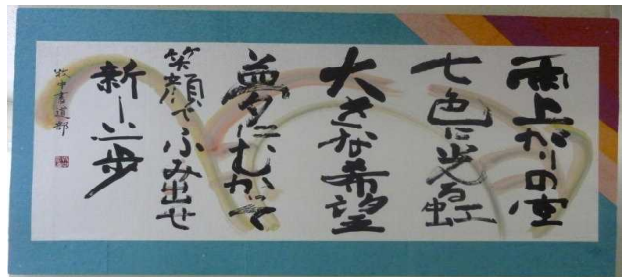 雨上がりの空
七色に光る虹
大きな希望
夢にむかって
笑顔でふみ出せ
新しい一歩
牧中書道部